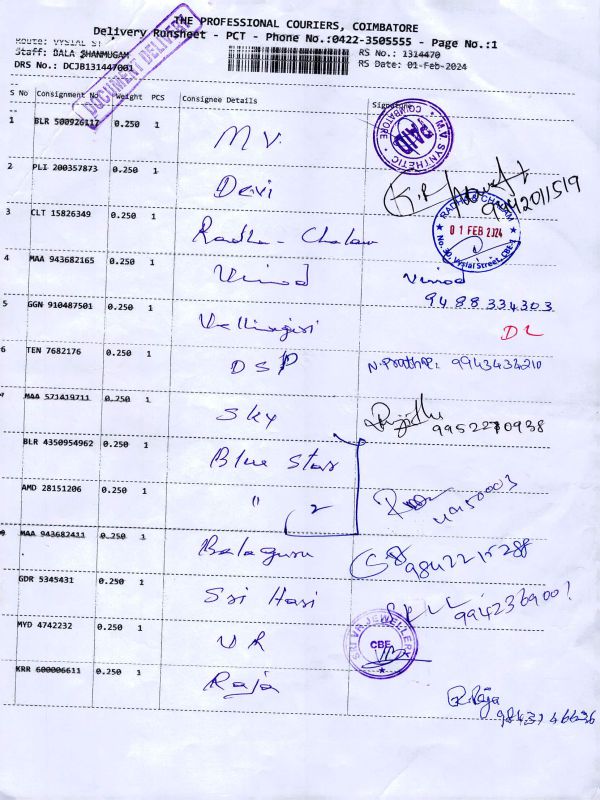 THE PROFESSIONAL COURIERS, COIMBATORE
Delivery Runsheet - PCT - Phone No.:0422-3505555 - Page No.:1
Route: VYSIAL ST
Staff: BALA SHANMUGAM
RS No.: 1314470
DRS No.: DCJB131447001
RS Date: 01-Feb-2024
DOCUMENT DELIVERY
S No Consignment No Weight PCS Consignee Details Signature
1 BLR 500926117 0.250 1 M V.
M.V. SYNTHETIC COIMBATORE PAID
2 PLI 200357873 0.250 1 Devi
3 CLT 15826349 0.250 1 Radha - Chalam
RADHA CHALAM 01 FEB 2024 No. 30, Vysial Street, CBE-1
4 MAA 943682165 0.250 1 Vinod Vinod
9488334303
5 GGN 910487501 0.250 1 Vellingiri DL
6 TEN 7682176 0.250 1 DSP 9943434210
7 MAA 571419711 0.250 1 Sky
9952270938
BLR 4350954962 0.250 1 Blue Star
AMD 28151206 0.250 1 " 2
MAA 943682411 0.250 1 Balaguru
GDR 5345431 0.250 1 Sri Hari
MYD 4742232 0.250 1 V R
SRI VR JEWELLERY CBE
KRR 600006611 0.250 1 Raja R. Raja